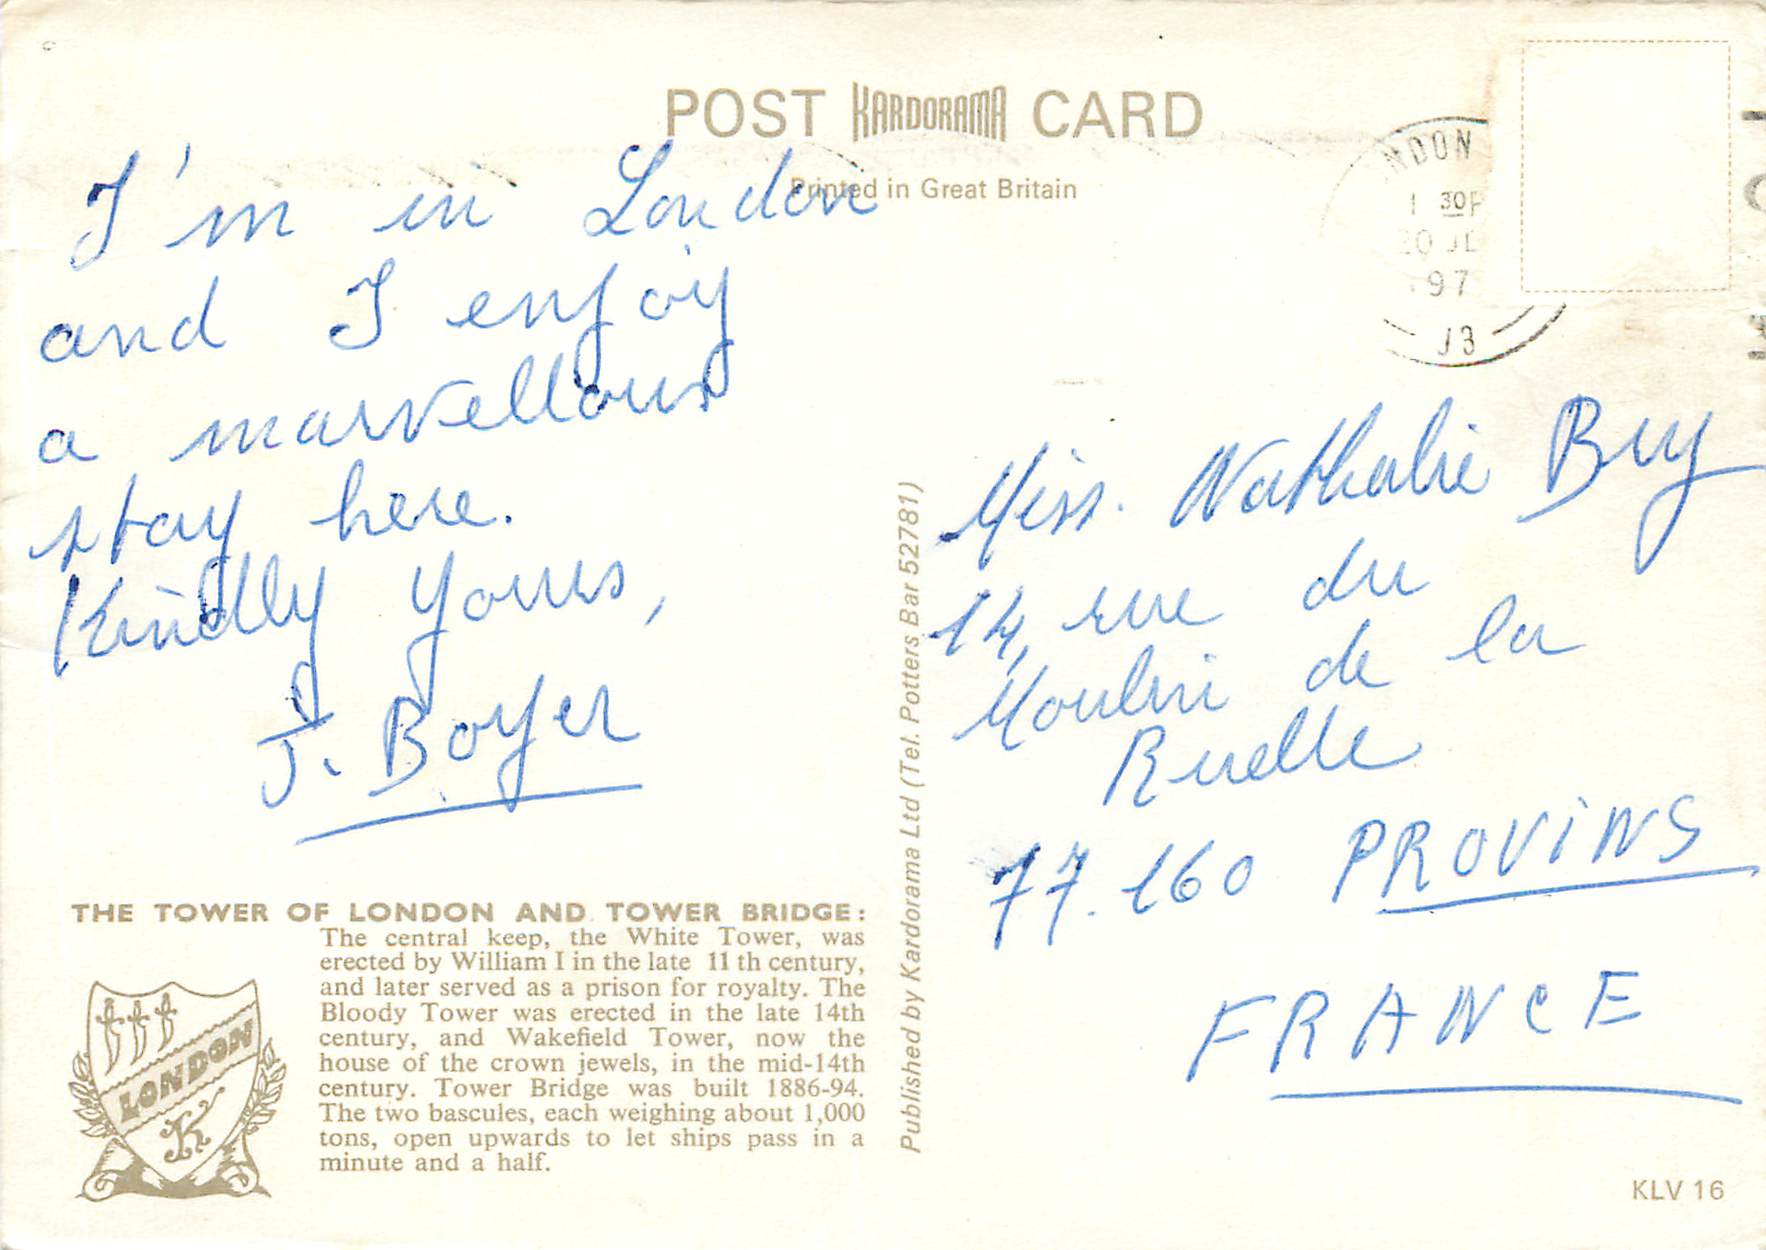 POST KARDORAMA CARD
Printed in Great Britain
NDON
1 30P
20 JL
197
J3
I'm in London
and I enjoy
a marvellous
stay here.
Kindly yours,
J. Boyer
THE TOWER OF LONDON AND TOWER BRIDGE:
The central keep, the White Tower, was
erected by William I in the late 11 th century,
and later served as a prison for royalty. The
Bloody Tower was erected in the late 14th
century, and Wakefield Tower, now the
house of the crown jewels, in the mid-14th
century. Tower Bridge was built 1886-94.
The two bascules, each weighing about 1,000
tons, open upwards to let ships pass in a
minute and a half.
LONDON
K
Published by Kardorama Ltd (Tel. Potters Bar 52781)
Miss. Nathalie Buy
14, rue du
Moulin de la
Ruelle
77.160 PROVINS
FRANCE
KLV 16